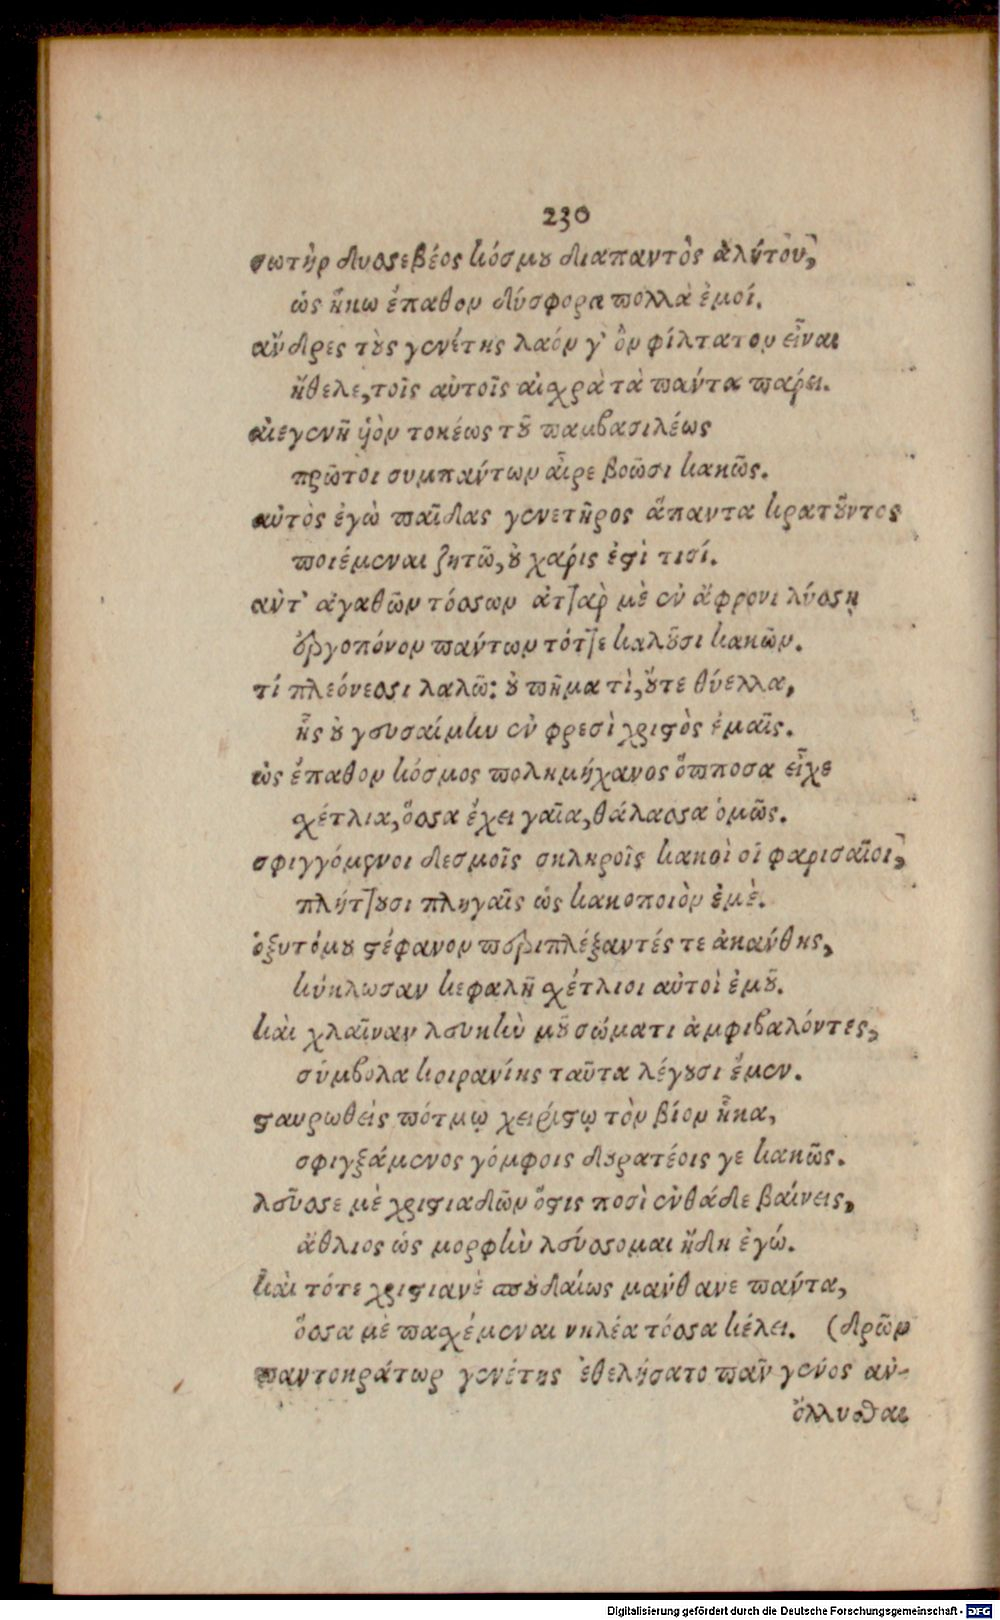 230
σωτὴρ δυσσεβέος κόσμου διαπαντὸς ἀλύτου,
ὡς ἥκω ἔπαθον δύσφορα πολλὰ ἐμοί.
ἄνδρες τοὺς γενέτης λαόν γ' ὃν φίλτατον εἶναι
ἤθελε, τοῖς αὐτοῖς αἰσχρὰ τὰ πάντα πάρει.
αἰεγενῆ υἱὸν τοκέως τοῦ παμβασιλέως
πρῶτοι συμπάντων αἶρε βοῶσι κακῶς.
αὐτὸς ἐγὼ παῖδας γενετῆρος ἅπαντα κρατοῦντος
ποιέμεναι ζητῶ, οὐ χάρις ἐστὶ τισί.
ἀντ' ἀγαθῶν τόσσων ἀτταρ μὲ ἐν ἄφρονι λύσσῃ
ἐργοπόνον πάντων τόττε καλοῦσι κακῶν.
τί πλεόνεσσι λαλῶ: οὐ πῆμα τὶ, οὔτε θύελλα,
ἧς οὐ γευσαίμην ἐν φρεσὶ χριστὸς ἐμαῖς.
ὡς ἔπαθον κόσμος πολημήχανος ὅπποσα εἶχε
σχέτλια, ὅσσα ἔχει γαῖα, θάλασσα ὁμῶς.
σφιγγόμενοι δεσμοῖς σκληροῖς κακοὶ οἱ φαρισαῖοι,
πλήττουσι πληγαῖς ὡς κακοποιὸν ἐμὲ.
ὀξυτόμου στέφανον περιπλέξαντές τε ἀκάνθης,
κύκλωσαν κεφαλῇ σχέτλιοι αὐτοὶ ἐμοῦ.
καὶ χλαῖναν λευκὴν μοῦ σώματι ἀμφιβαλόντες,
σύμβολα κοιρανίης ταῦτα λέγουσι ἔμεν.
σταυρωθεὶς πότμῳ χειρίστῳ τὸν βίον ἧκα,
σφιγξάμενος γόμφοις δουρατέοις γε κακῶς.
λεῦσσε μὲ χριστιαδῶν ὅστις ποσὶ ἐνθάδε βαίνεις,
ἄθλιος ὡς μορφὴν λεύσσομαι ἤδη ἐγώ.
καὶ τότε χριστιανὲ σπουδαίως μάνθανε πάντα,
ὅσσα μὲ πασχέμεναι νηλέα τόσσα κέλει. (δρῶν
παντοκράτωρ γενέτης ἐθελήσατο πᾶν γένος ἀν-
ὄλλυσθαι
Digitalisierung gefördert durch die Deutsche Forschungsgemeinschaft - DFG